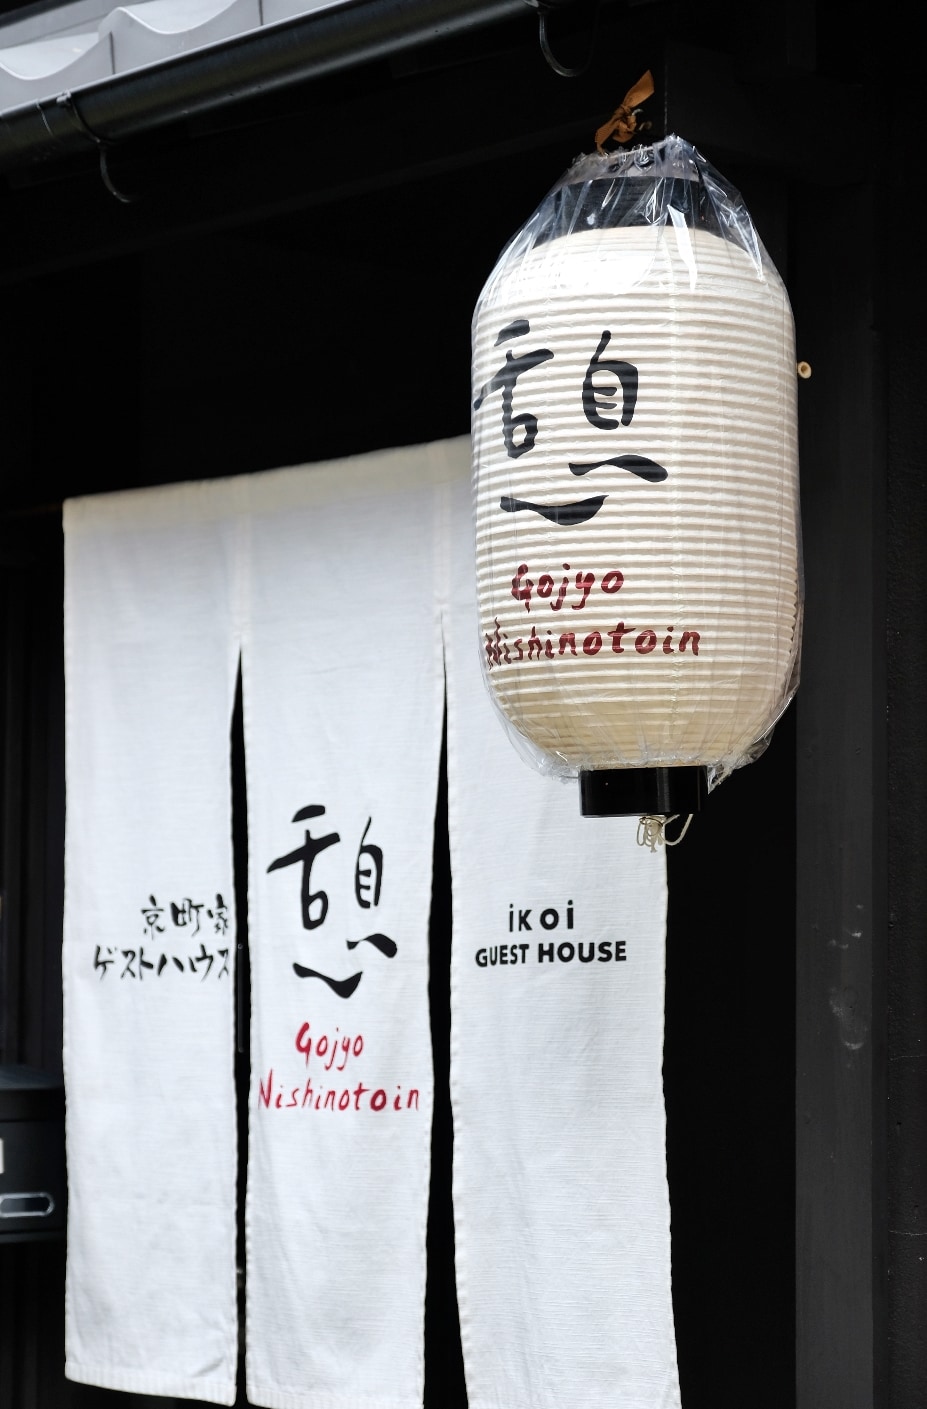 憩
Gojyo
Nishinotoin
京町家
ゲストハウス
憩
Gojyo
Nishinotoin
iKoi
GUEST HOUSE